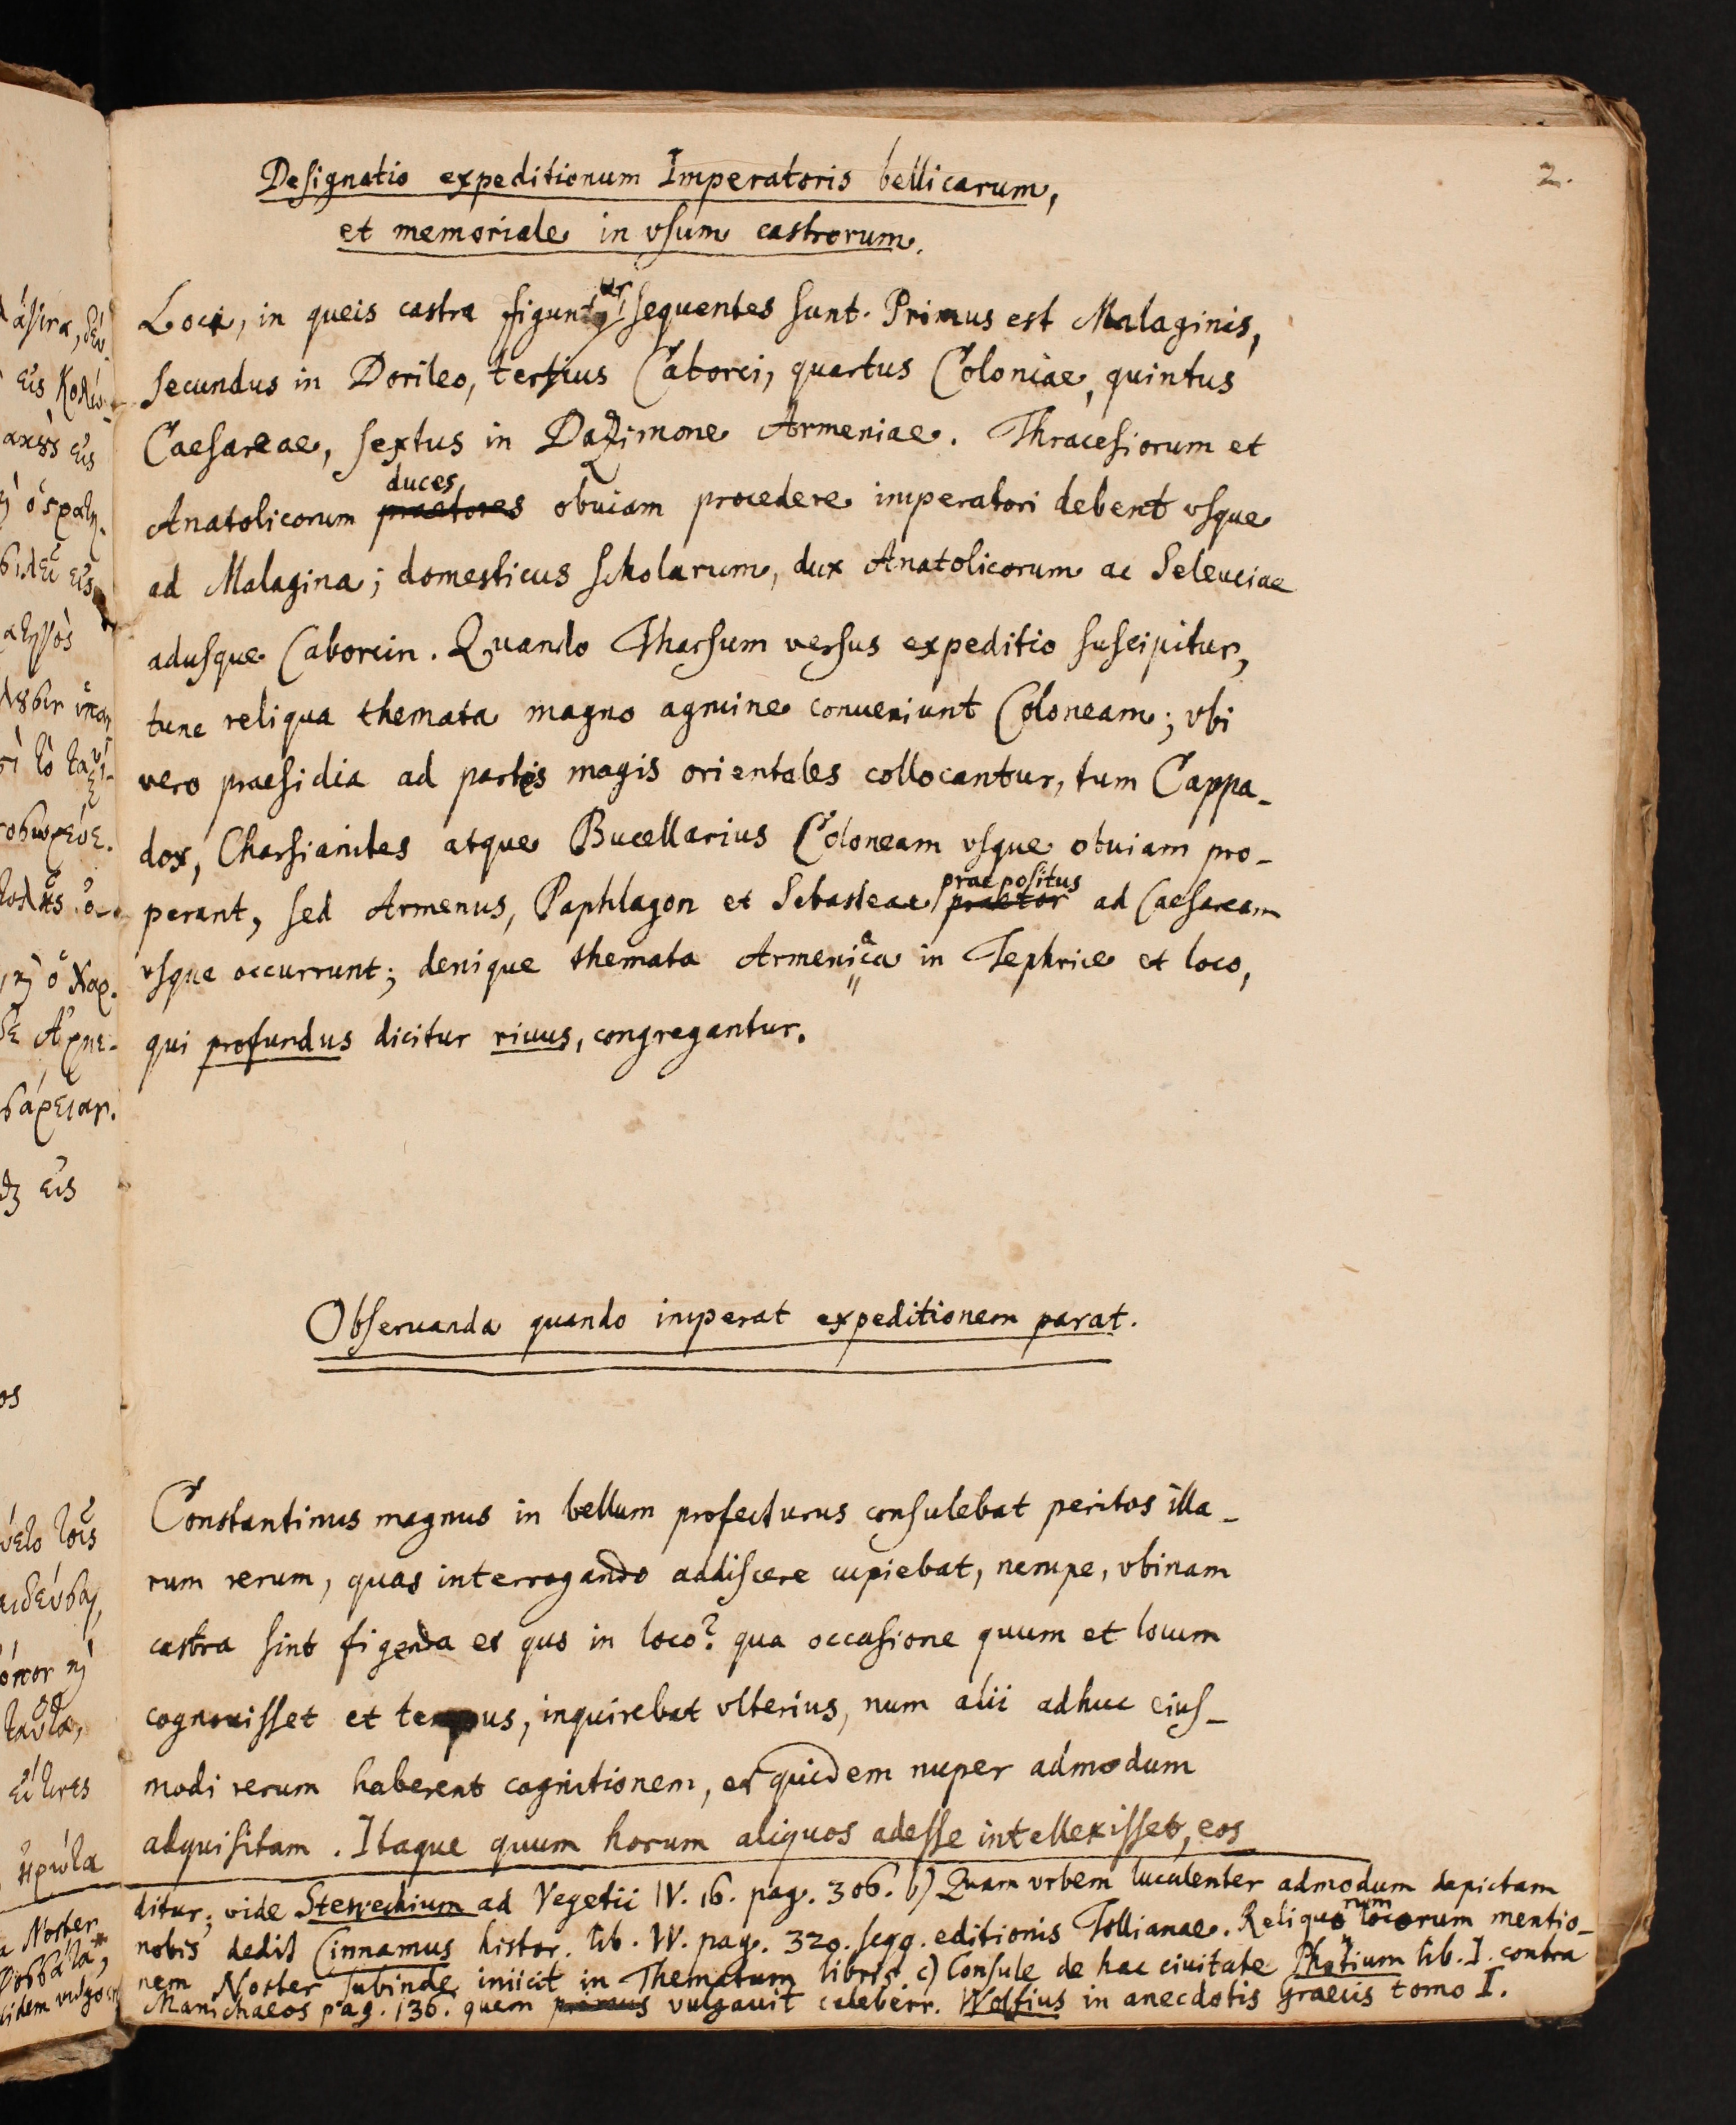 2.
Designatio expeditionum Imperatoris bellicarum,
et memoriale in vsum castrorum.
Loca, in queis castra figuntur sequentes sunt. Primus est Malaginis,
secundus in Dorileo, tertius Caborci, quartus Coloniae, quintus
Caesareae, sextus in Dazimone Armeniae. Thracesiorum et
Anatolicorum praetores duces obuiam procedere imperatori debent vsque
ad Malagina; domesticus scholarum, dux Anatolicorum ac Seleuciae
adusque Caborcin. Quando Tharsum versus expeditio suscipitur,
tunc reliqua themata magno agmine conueniunt Coloneam; vbi
vero praesidia ad partes magis orientales collocantur, tum Cappa-
dox, Charsianites atque Bucellarius Coloneam vsque obuiam pro-
perant, sed Armenus, Paphlagon et Sebasteae praetor praepositus ad Caesaream
vsque occurrunt; denique themata Armeniaca in Tephrice et loco,
qui profundus dicitur riuus, congregantur.
Obseruanda quando imperat expeditionem parat.
Constantinus magnus in bellum profecturus consulebat peritos illa-
rum rerum, quas interrogando addiscere cupiebat, nempe, vbinam
castra sint figenda et quo in loco? qua occasione quum et locum
cognouisset et tempus, inquirebat vlterius, num alii adhuc eius-
modi rerum haberent cognitionem, et quidem nuper admodum
adquisitam. Itaque quum horum aliquos adesse intellexisset, eos
ditur; vide Stewechium ad Vegetii IV. 16. pag. 306. b) Quam vrbem luculenter admodum depictam
nobis dedit Cinnamus histor. lib. IV. pag. 320. seqq. editionis Tollianae. Reliquorum locorum mentio-
nem Noster subinde iniicit in Thematum libris. c) Consule de hac ciuitate Photium lib. I. contra
Manichaeos pag. 136. quem primus vulgauit celeberr. Wolfius in anecdotis Graecis tomo I.